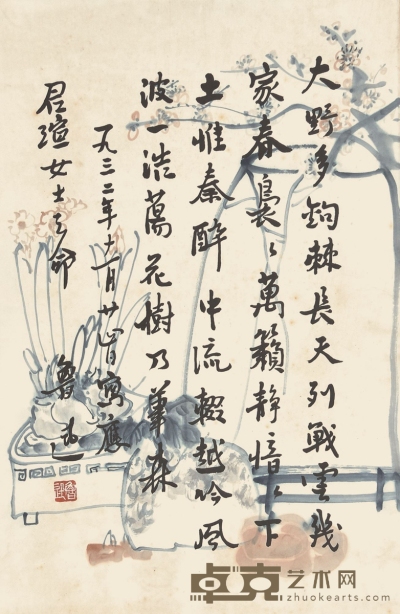 大野多鉤棘長天列戰雲幾
家春裊〻萬籟靜愔〻下
土惟秦醉中流輟越吟風
波一浩蕩花樹乃蕭森
一九三二年 寫應
君瑄女士之命
魯迅
魯迅
卓克艺术网
zhuokearts.com